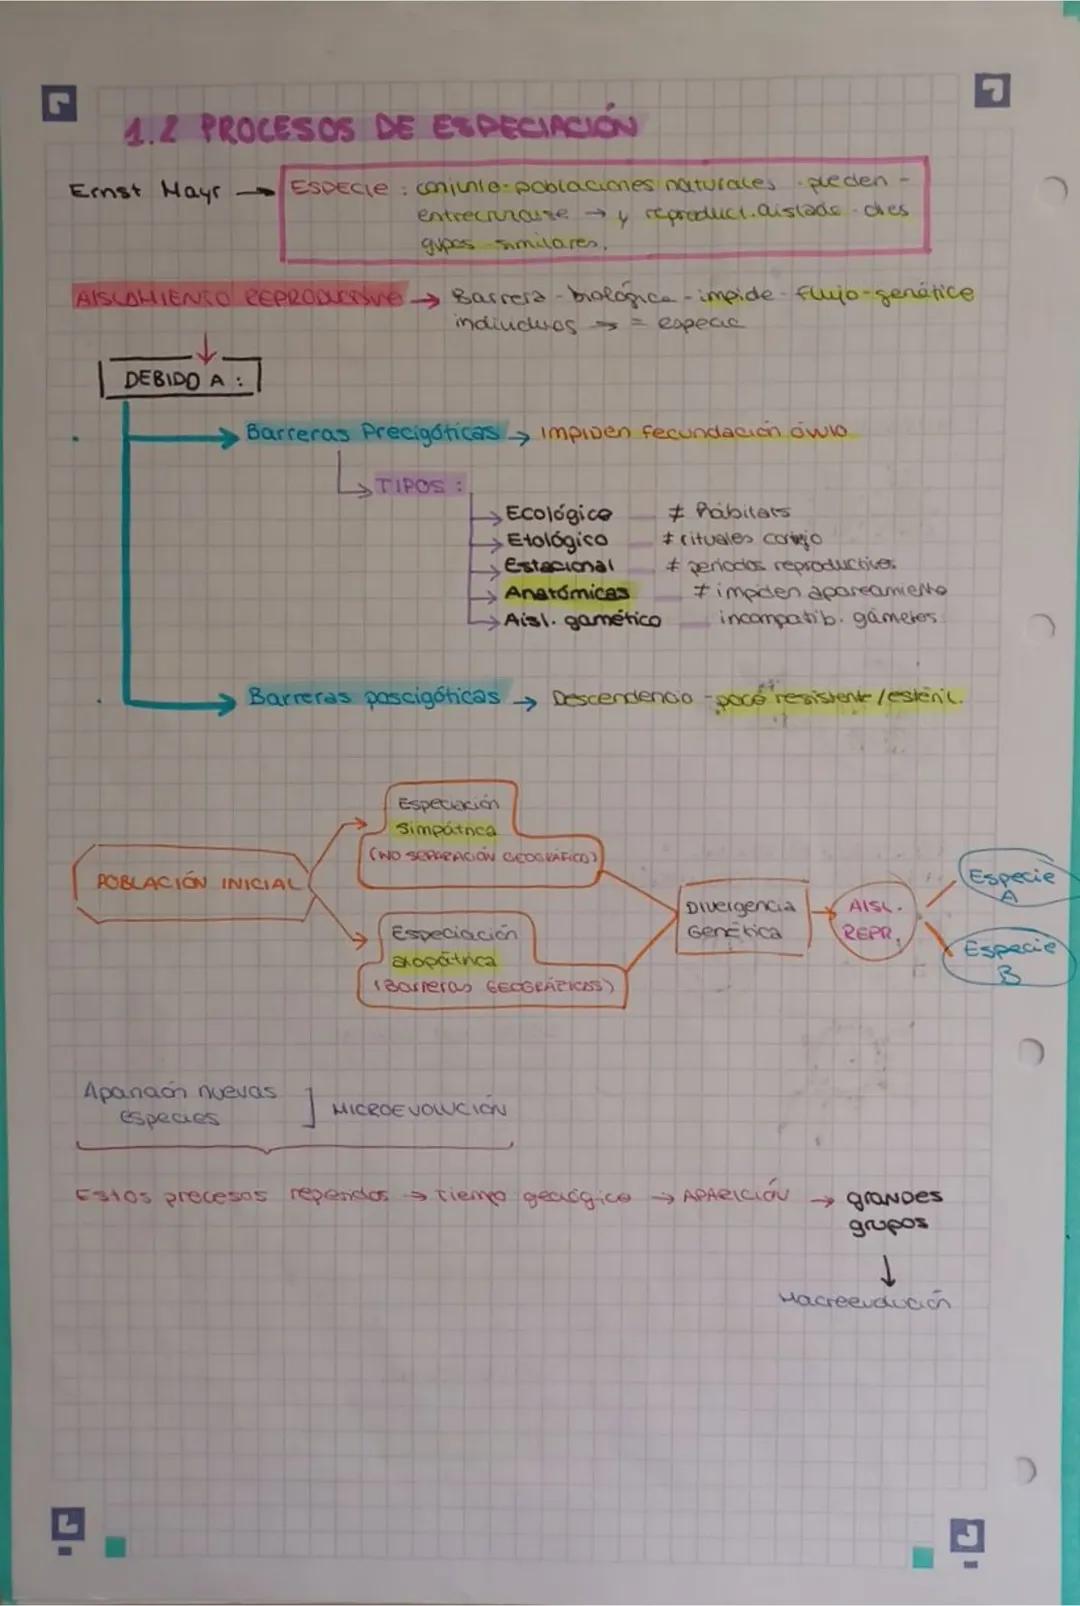 1.2 PROCESOS DE ESPECIACIÓN
Ernst Mayr → ESPECIE : conjunto - poblaciones naturales - pueden -
entrecruzarse → y reproduct. aislado - otres
grupos - similares.
AISLAMIENTO REPRODUCTIVO → Barrera - biológica - impide - flujo - genético
individuos → = especie
DEBIDO A :
Barreras Precigóticas → IMPIDEN fecundación óvulo
TIPOS :
→ Ecológico ≠ hábitats
→ Etológico ≠ rituales cortejo
→ Estacional ≠ periodos reproductivos
→ Anatómicas ≠ impiden apareamiento
→ Aisl. gamético incompatib. gámetos
Barreras poscigóticas → Descendencia - poco resistente / estéril.
Especiación
Simpátrica
(NO SEPARACIÓN GEOGRÁFICO)
POBLACIÓN INICIAL
Especiación
alopátrica
(Barreras GEOGRÁFICAS)
Divergencia
Genética
AISL.
REPR.
Especie
A
Especie
B
Aparición nuevas
especies ] MICROEVOLUCIÓN
Estos procesos repetidos → Tiempo geológico → APARICIÓN → grandes
grupos
↓
Macroevolución